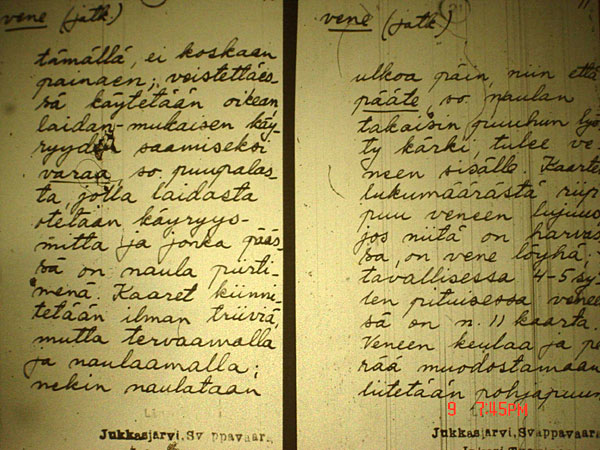 vene (jatk.)
tämällä, ei koskaan
painaen; veistettäes-
sä käytetään oikean
laidan-mukaisen käy-
ryyden saamiseksi
varaa, so. puupalas-
ta, jolla laidasta
otetaan käyryys-
mitta ja jonka pääs-
sä on naula piirti-
menä. Kaaret kiinni-
tetään ilman triiviä,
mutta tervaamalla
ja naulaamalla;
nekin naulataan
Jukkasjärvi, Svappavaara
vene (jatk.)
ulkoa päin, niin että
pääte, so. naulan
takaisin puuhun lyö-
ty kärki, tulee ve-
neen sisälle. Kaarten
lukumäärästä riip-
puu veneen lujuus
jos niitä on harvas-
sa, on vene löyhä;
tavallisessa 4-5 sy-
len pituisessa venee
sä on n. 11 kaarta.
Veneen keulaa ja pe
rää muodostamaan
liitetään pohjapuun
9 7:45PM
Jukkasjärvi, Svappavaar